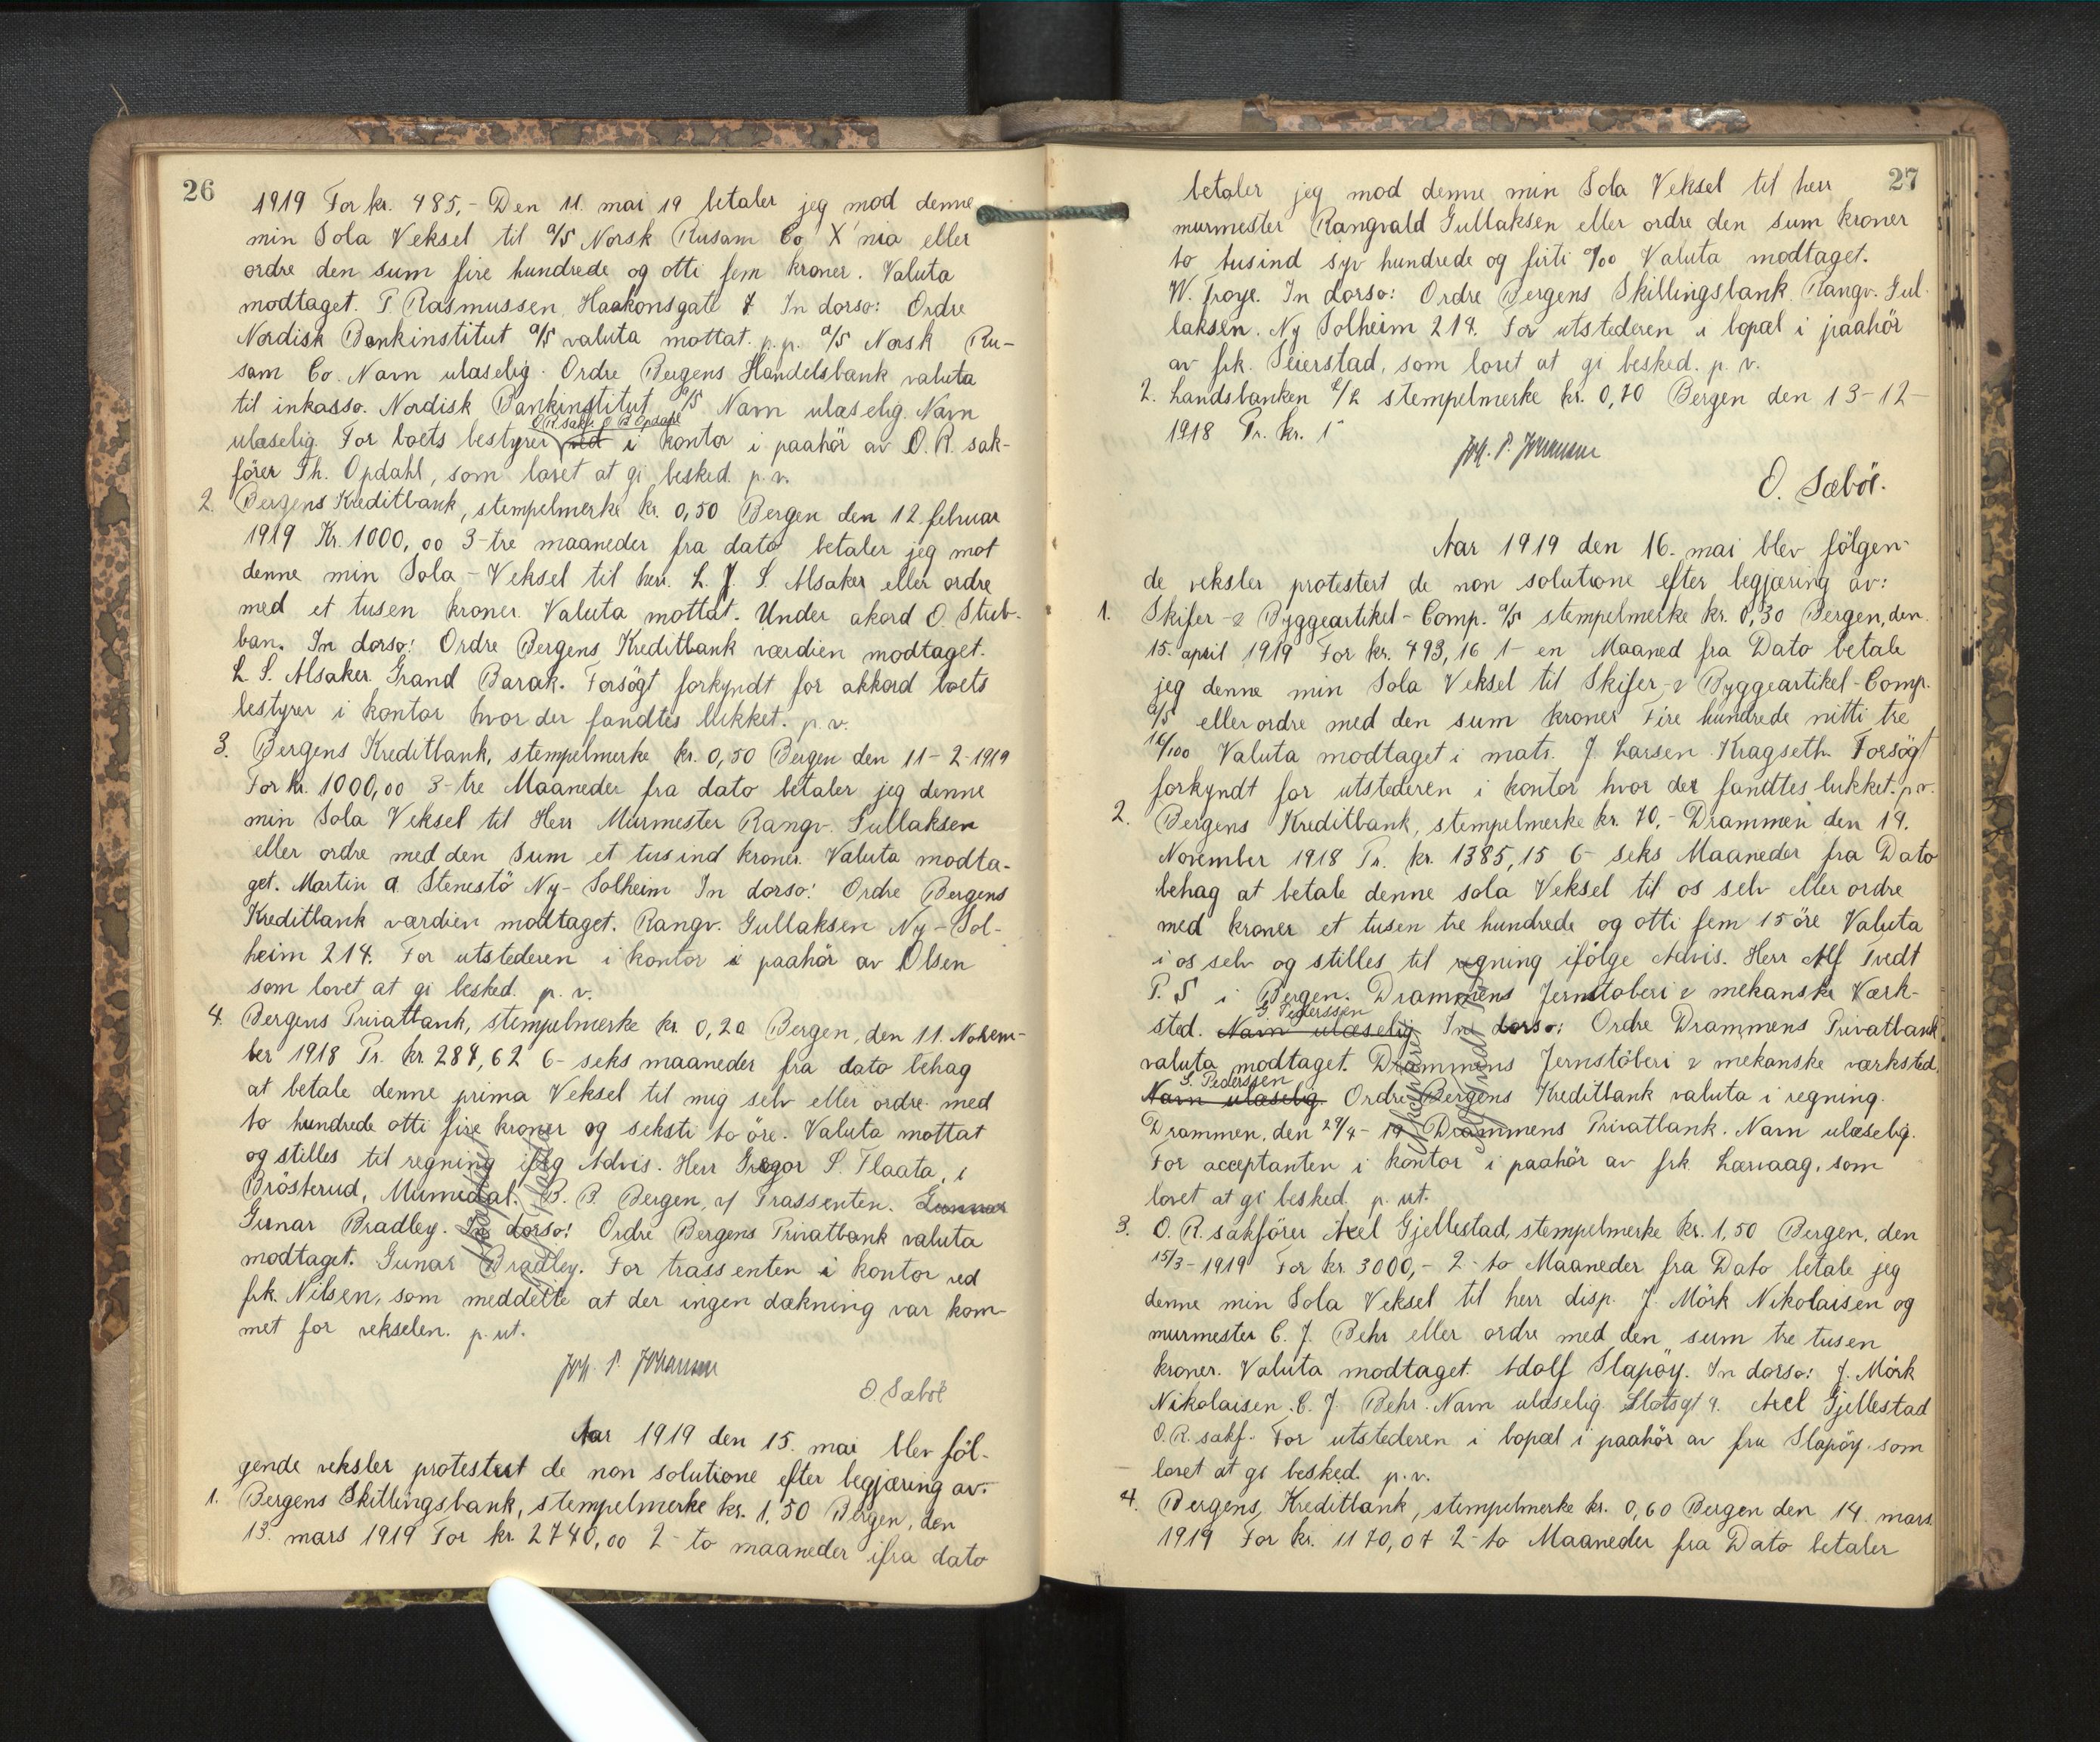 26
1919 For kr. 485,- Den 11. mai 19 betaler jeg mod denne
min Sola Veksel til a/s Norsk Rusam Co X'nia eller
ordre den sum fire hundrede og otti fem kroner. Valuta
modtaget. P. Rasmussen, Haakonsgate 7 In dorso: Ordre
Nordisk Bankinstitut a/s valuta mottat. p.p. a/s Norsk Ru-
sam Co. Navn ulæselig. Ordre Bergens Handelsbank valuta
til inkasso. Nordisk Bankinstitut a/s Navn ulæselig. Navn
O.R.sakf. Opdahl
ulæselig. For boets bestyrer ved i kontor i paahör av O.R. sak-
förer Th. Opdahl, som lovet at gi besked. p.v.
2. Bergens Kreditbank, stempelmerke kr. 0,50 Bergen den 12 februar
1919 Kr. 1000,00 3-tre maaneder fra dato betaler jeg mot
denne min Sola-Veksel til herr. L. J. S. Alsaker eller ordre
med et tusen kroner. Valuta mottat. Under akord O. Stub-
ban. In dorso: Ordre Bergens Kreditbank værdien modtaget.
L. S. Alsaker. Grand Barak. Forsögt forkyndt for akkord boets
bestyrer i kontor hvor der fandtes lukket. p.v.
3. Bergens Kreditbank, stempelmerke kr. 0,50 Bergen den 11-2-1919
For kr. 1000,00 3-tre Maaneder fra dato betaler jeg denne
min Sola Veksel til Herr Murmester Rangv. Gullaksen
eller ordre med den sum et tusind kroner. Valuta modta-
get. Martin A Stenestö Ny-Solheim In dorso: Ordre Bergens
Kreditbank værdien modtaget. Rangv. Gullaksen Ny-Sol-
heim 214. For utstederen i kontor i paahör av Olsen
som lovet at gi besked. p.v.
4. Bergens Privatbank, stempelmerke kr. 0,20 Bergen, den 11. Novem-
ber 1918 Pr. kr 284,62 6-seks maaneder fra dato behag
at betale denne prima Veksel til mig selv eller ordre med
to hundrede otti fire kroner og seksti to öre. Valuta mottat
og stilles til regning iflg Advis. Herr Gregor S. Flaata, i
Brösterud, Numedal. B. B. Bergen, v/ Trassenten. Gunnar
Gunar Bradley. In dorso: Ordre Bergens Privatbank valuta
modtaget. Gunar Bradley. For trassenten i kontor ved
frk. Nilsen, som meddelte at der ingen dækning var kom-
met for vekselen. p. ut.
Joh. P. Johannsen
O. Sæböe
Aar 1919 den 15. mai blev föl-
gende veksler protestert de non solutione efter begjæring av:
1. Bergens Skillingsbank, stempelmerke kr. 1,50 Bergen, den
13. mars 1919 For kr. 2740,00 2-to maaneder ifra dato
27
betaler jeg mod denne min Sola Veksel til herr
murmester Rangvald Gullaksen eller ordre den sum kroner
to tusind syv hundrede og firti 0/00 Valuta modtaget.
W. Troye. In dorso: Ordre Bergens Skillingsbank Rangv. Gul-
laksen. Ny Solheim 214. For utstederen i bopæl i paahör
av frk. Seierstad, som lovet at gi besked. p.v.
2. Landsbanken a/s stempelmerke kr. 0,70 Bergen den 13-12-
1918 Pr. kr. 1
Joh. P. Johannsen
O. Sæböe.
Aar 1919 den 16. mai blev fölgen-
de veksler protestert de non solutione efter begjæring av:
1. Skifer- & Byggeartikel-Comp. a/s stempelmerke kr. 0,30 Bergen, den
15. april 1919 For kr. 493,16 1- en Maaned fra Dato betale
jeg denne min Sola Veksel til Skifer- & Byggeartikel-Comp.
a/s eller ordre med den sum kroner Fire hundrede nitti tre
16/100 Valuta modtaget i mats. J. Larsen Kragseth. Forsögt
forkyndt for utstederen i kontor hvor der fandtes lukket. p.v.
2. Bergens Kreditbank, stempelmerke kr. 70,- Drammen den 19.
November 1918 Pr. kr. 1385,15 6-seks Maaneder fra Dato
behag at betale denne sola Veksel til os selv eller ordre
med kroner et tusen tre hundrede og otti fem 15 öre Valuta
i os selv og stilles til regning ifölge Advis. Herr Alf Tvedt
P. S i Bergen. Drammens Jernstöberi & mekanske Værk-
G. Pederssen
sted. Navn ulæselig In dorso: Ordre Drammens Privatbank
valuta modtaget. Drammens Jernstöberi & mekanske værksted.
G. Pederssen
Navn ulæselig. Ordre Bergens Kreditbank valuta i regning.
Drammen, den 29/4-19 Drammens Privatbank. Navn ulæselig.
For acceptanten i kontor i paahör av frk. Lærvaag, som
lovet at gi besked. p. ut.
3. O. R. sakförer Axel Gjellestad, stempelmerke kr. 1,50 Bergen, den
15/3-1919 For kr. 3000,- 2-to Maaneder fra Dato betale jeg
denne min Sola Veksel til herr disp. J. Mörk Nikolaisen og
murmester C. J. Behr eller ordre med den sum tre tusen
kroner. Valuta modtaget. Adolf Slapöy. In dorso: J. Mörk
Nikolaisen. C. J. Behr. Navn ulæselig. Slotsgt 4. Axel Gjellestad
O.R. sakf. For utstederen i bopæl i paahör av fru Slapöy som
lovet at gi besked. p.v.
4. Bergens Kreditbank, stempelmerke kr. 0,60 Bergen den 14. mars
1919 For kr. 1170,07 2-to Maaneder fra Dato betaler